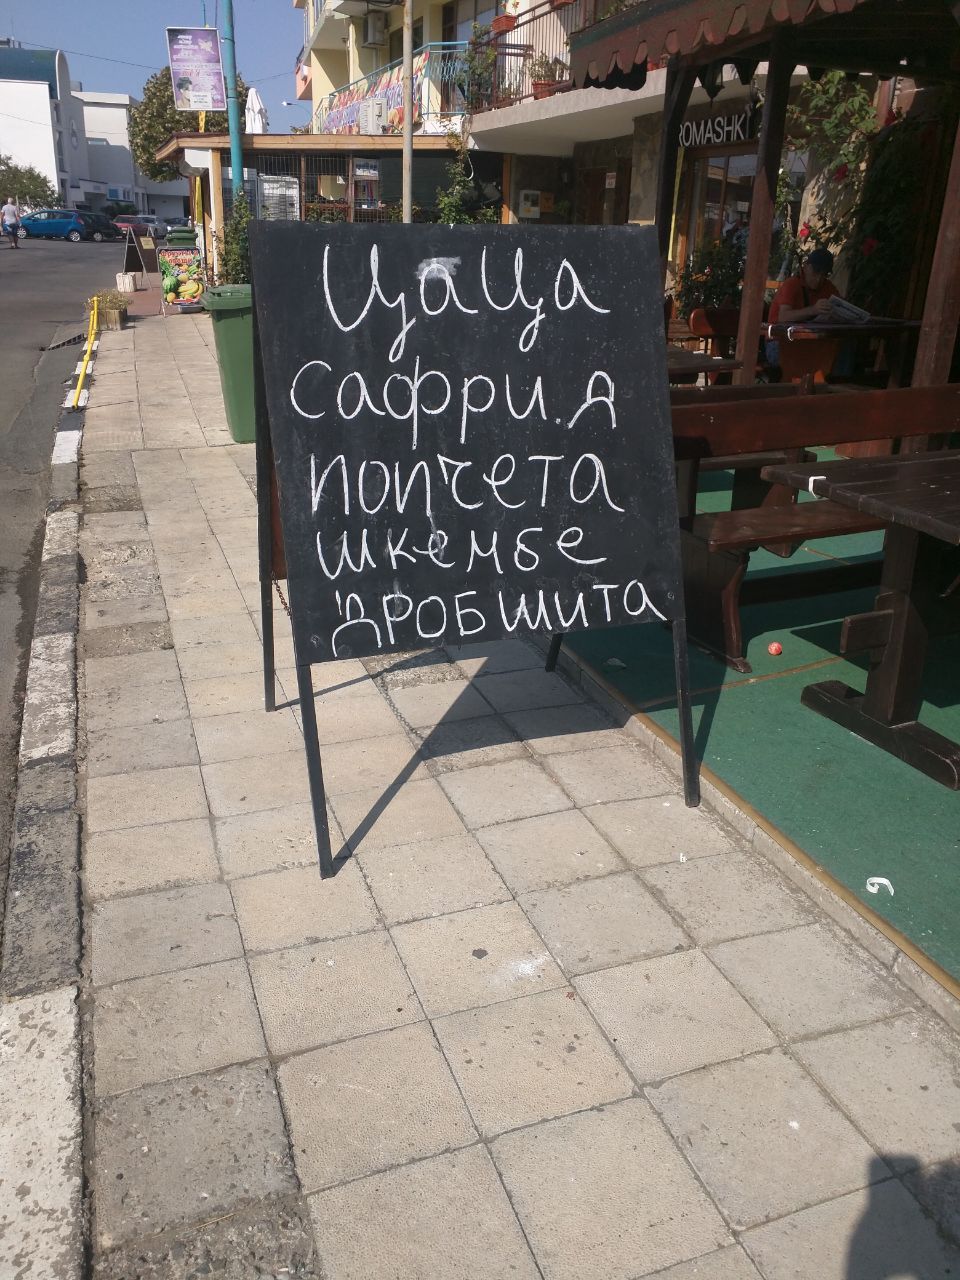 цаца
сафри.д
попчета
шкембе
дробчита
ROMASHK